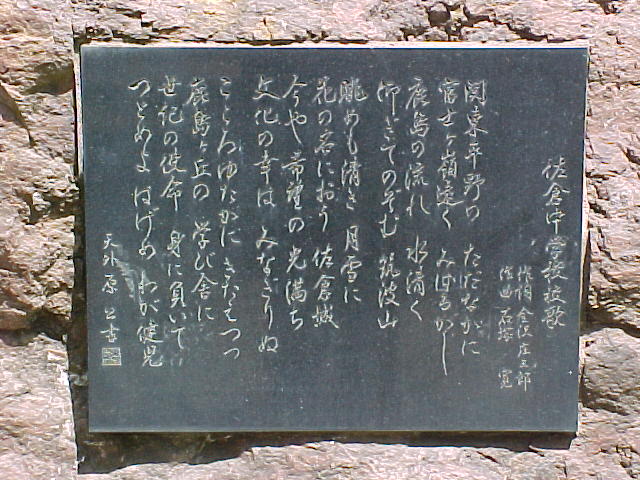 佐倉中学校校歌
作詞 金沢 庄三郎
作曲 石塚 寛
関東平野の たゞなかに
富士ヶ嶺遠く みはるかし
鹿島の流れ 水清く
仰ぎてのぞむ 筑波山
眺めも清き 月雪に
花の名におう 佐倉城
今や希望の 光満ち
文化の幸は みなぎりぬ
こころゆたかに きたえつつ
鹿島ヶ丘の 学び舎に
世紀の使命 身に負いて
つとめよ はげめ わが健児
天外 原 書